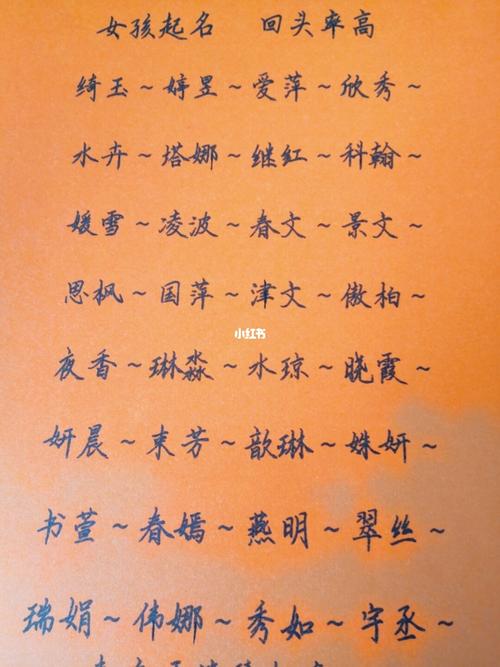 女孩起名 回头率高
绮玉~婷昱~爱萍~欣秀~
水卉~塔娜~继红~科翰~
媛雪~凌波~春文~景文~
思枫~国萍~津文~傲柏~
小红书
夜香~琳淼~水琼~晓霞~
妍晨~束芳~歆琳~姝妍~
书萱~春嫣~燕明~翠丝~
瑞娟~伟娜~秀如~宇丞~